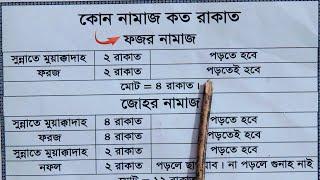 কোন নামাজ কত রাকাত
ফজর নামাজ
সুন্নাতে মুয়াক্কাদাহ ২ রাকাত পড়তে হবে
ফরজ ২ রাকাত পড়তেই হবে
মোট = ৪ রাকাত।
জোহর নামাজ
সুন্নাতে মুয়াক্কাদাহ ৪ রাকাত পড়তে হবে
ফরজ ৪ রাকাত পড়তেই হবে
সুন্নাতে মুয়াক্কাদাহ ২ রাকাত পড়তে হবে
নফল ২ রাকাত পড়লে ছাওয়াব। না পড়লে গুনাহ নাই
মোট = ১২ রাকাত